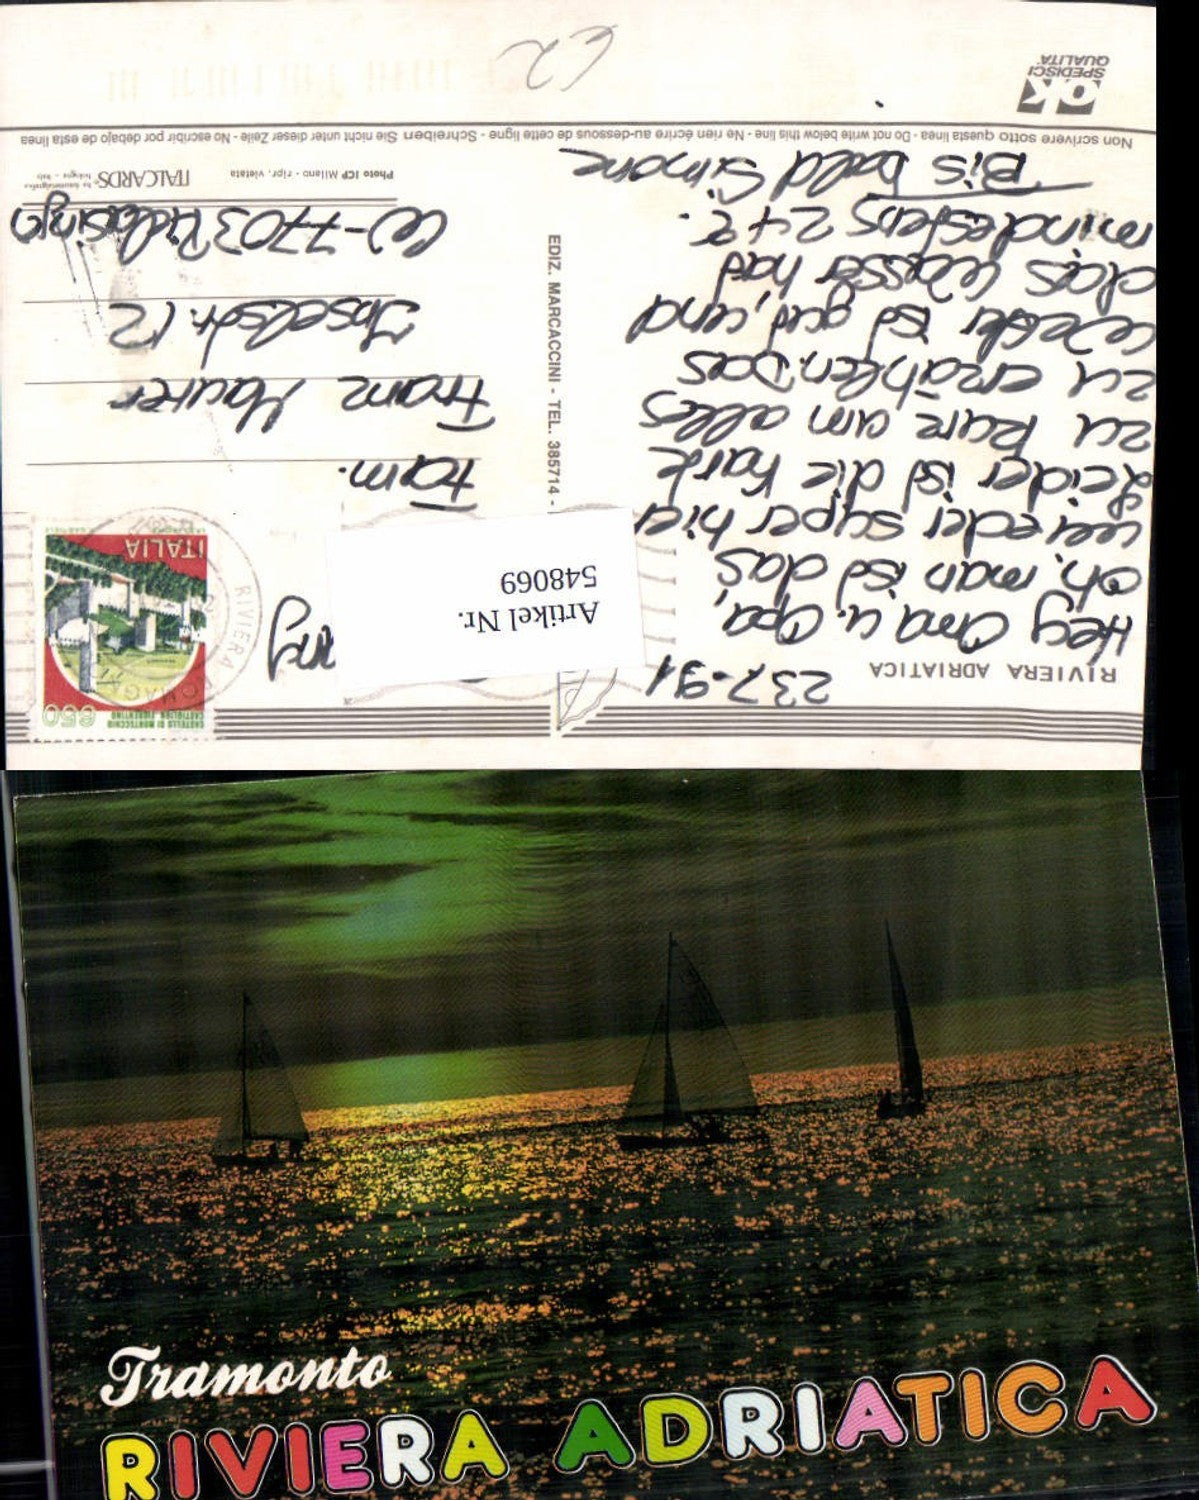 RIVIERA ADRIATICA
23.7.91
Hey Oma u. Opa,
oh, man ist das
wieder super hier
Leider ist die Karte
zu kurz um alles
zu erzählen. Das
Wetter ist gut, und
das Wasser hat
mindestens 24°.
Bis bald Simone
EDIZ. MARCACCINI - TEL. 385714 -
Artikel Nr.
548069
CASTELLO DI MONTECCHIO
CASTIGLION FIORENTINO
650
ITALIA
RIVIERA ROMAGN
Fam.
Franz Maurer
Inselstr. 12
W-7703 Rielasingen
Photo ICP Milano - ripr. vietata
ITALCARDS
bologna - italy
Non scrivere sotto questa linea - Do not write below this line - Ne rien écrire au-dessous de cette ligne - Schreiben Sie nicht unter dieser Zeile - No escribir por debajo de esta linea
OK
SPEDISCI
QUALITÀ
€2
Tramonto
RIVIERA ADRIATICA